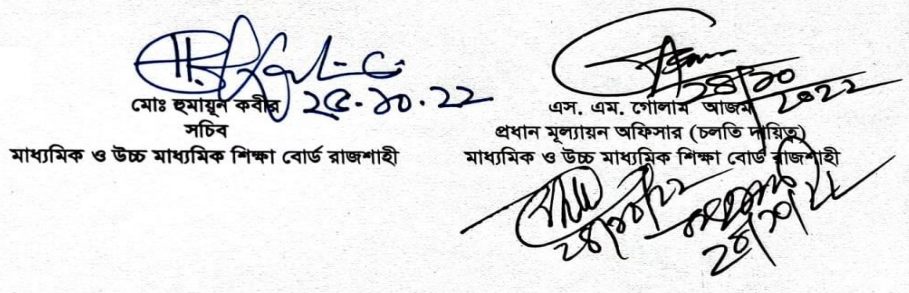 মোঃ হুমায়ূন কবীর
২৫.১০.২২
সচিব
মাধ্যমিক ও উচ্চ মাধ্যমিক শিক্ষা বোর্ড রাজশাহী
২৪/১০
২০২২
এস. এম. গোলাম আজম
প্রধান মূল্যায়ন অফিসার (চলতি দায়িত্ব)
মাধ্যমিক ও উচ্চ মাধ্যমিক শিক্ষা বোর্ড রাজশাহী
২৪/১০/২২
২৪/১০/২২